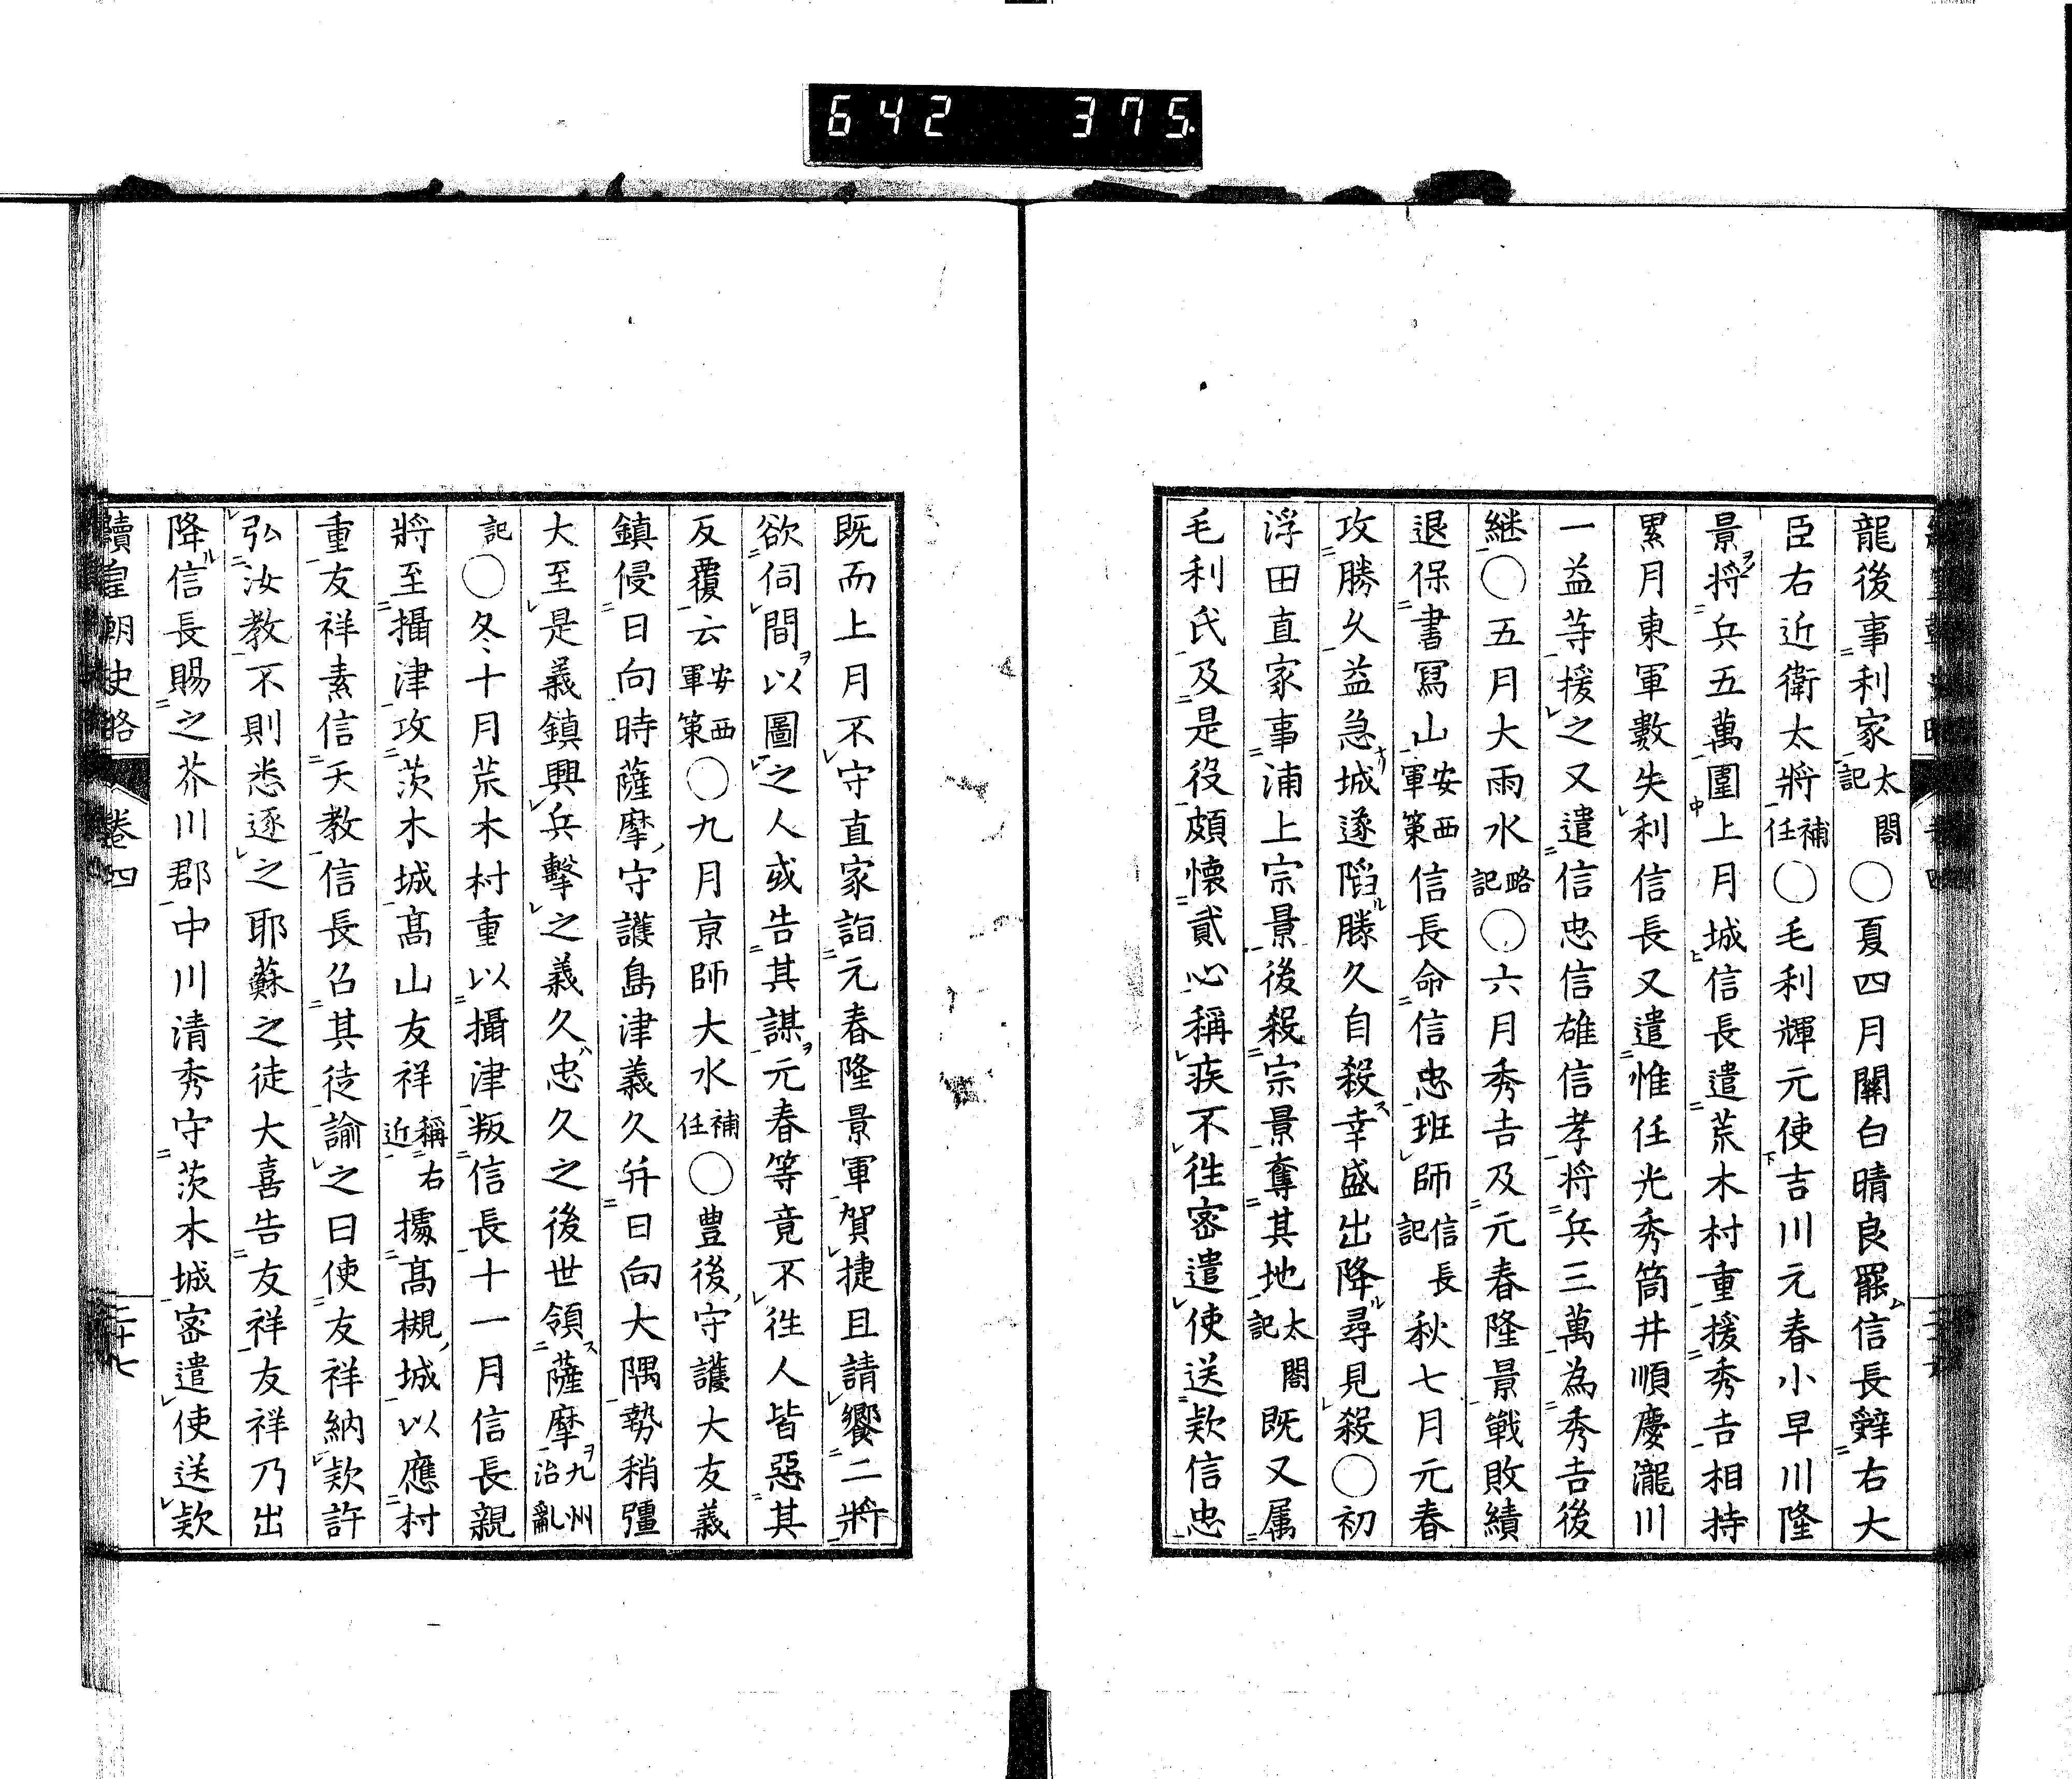 642 375.
龍後事利家太閤記○夏四月關白晴良罷信長辭右大
臣右近衛太將補任○毛利輝元使吉川元春小早川隆
景將兵五萬圍上月城信長遣荒木村重援秀吉相持
累月東軍數失利信長又遣惟任光秀筒井順慶瀧川
一益等援之又遣信忠信雄信孝將兵三萬為秀吉後
継○五月大雨水略記○六月秀吉及元春隆景戰敗績
退保書寫山安西軍策信長命信忠班師信長記秋七月元春
攻勝久益急城遂陷勝久自殺幸盛出降尋見殺○初
浮田直家事浦上宗景後殺宗景奪其地太閤記既又属
毛利氏及是役頗懷貳心稱疾不徃密遣使送欵信忠
既而上月不守直家詣元春隆景軍賀捷且請饗二將
欲伺間以圖之人或告其謀元春等竟不徃人皆惡其
反覆云安西軍策○九月京師大水補任○豊後守護大友義
鎮侵日向時薩摩守護島津義久并日向大隅勢稍彊
大至是義鎮興兵擊之義久忠久之後世領薩摩九州治亂
記○冬十月荒木村重以攝津叛信長十一月信長親
將至攝津攻茨木城髙山友祥稱右近據髙槻城以應村
重友祥素信天教信長召其徒諭之曰使友祥納欵許
弘汝教不則悉逐之耶蘇之徒大喜告友祥友祥乃出
降信長賜之芥川郡中川清秀守茨木城密遣使送欵
續皇朝史略 卷四 二十七